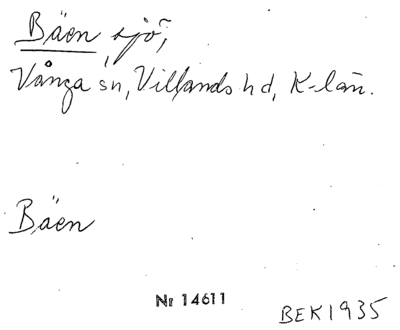 Bäen sjö,
Vånga sn, Villands hd, K-län.
Bäen
Nr 14611
BEK 1935